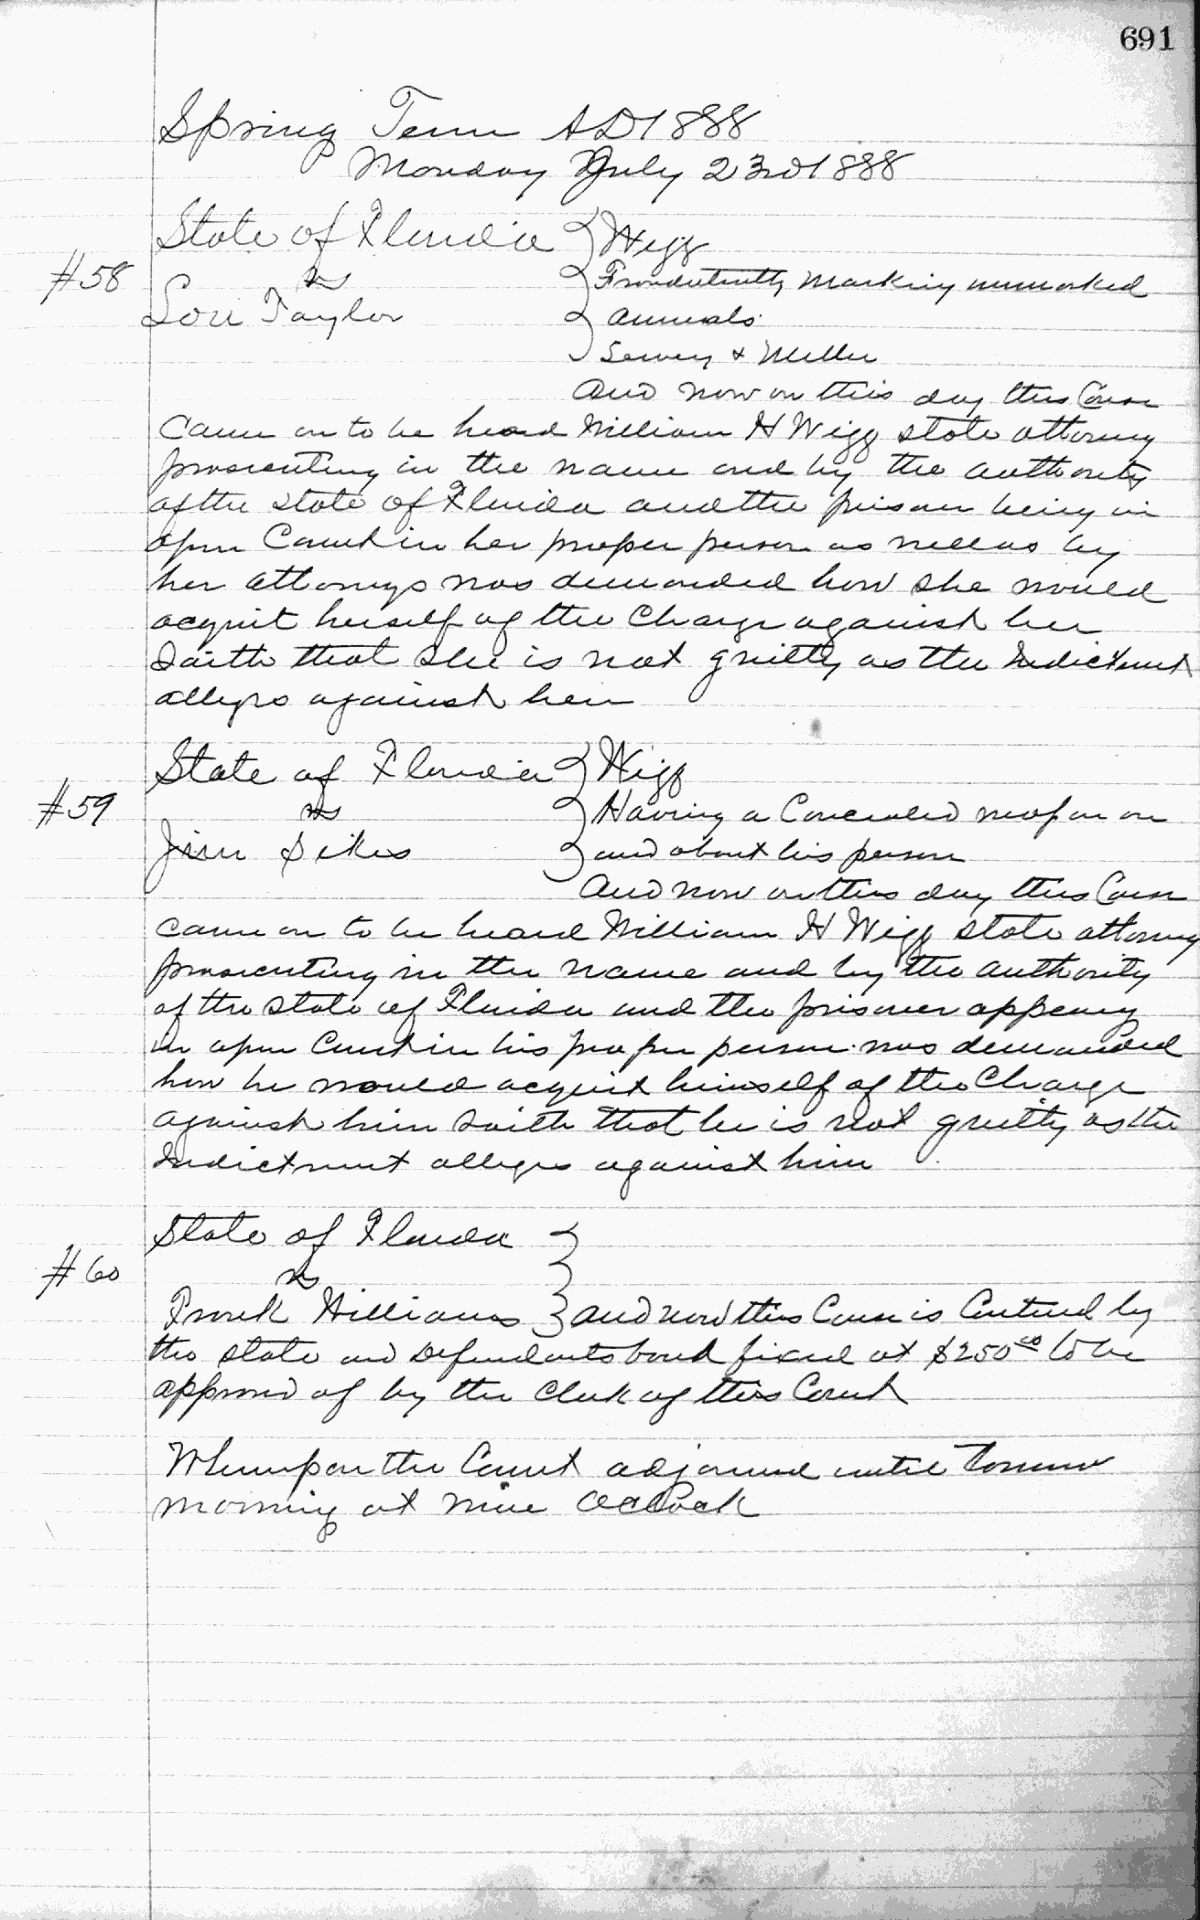 691
Spring Term AD 1888
Monday July 23rd 1888
State of Florida } Wigg
#58 vs } Fraudulently Marking unmarked
Lou Taylor } animals
Sewey & Miller
And now on this day this Cause
Came on to be heard William H Wigg state attorney
prosecuting in the name and by the authority
of the state of Florida and the prisoner being in
open Court in her proper person as well as by
her attorneys was demanded how she would
acquit herself of the Charge against her
Saith that she is not guilty as the Indictment
alleges against her
State of Florida } Wigg
#59 vs } Having a Concealed weapon on
Jim Sikes } and about his person
And now on this day this Cause
came on to be heard William H Wigg state attorney
prosecuting in the name and by the authority
of the state of Florida and the prisoner appearing
in open Court in his proper person was demanded
how he would acquit himself of the Charge
against him Saith that he is not guilty as the
Indictment alleges against him
State of Florida }
#60 vs }
Frank Williams } and now this Cause is Continued by
the state and Defendants bond fixed at $250 00 to be
approved of by the Clerk of this Court
Whereupon the Court adjourned until Tomorrow
morning at nine Oclock